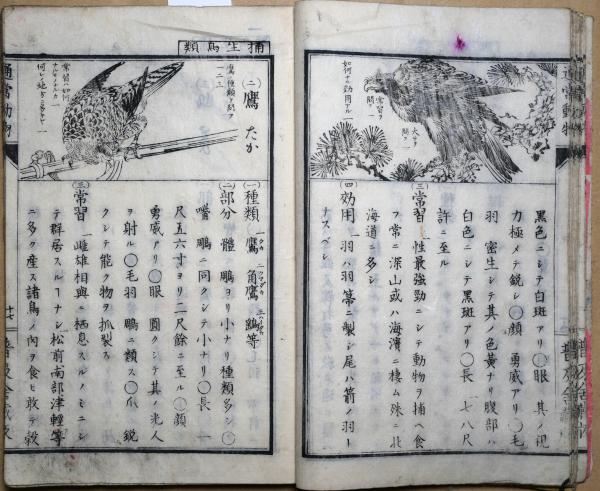 黒色ニシテ白斑アリ○眼 其ノ視
力極メテ鋭シ○顔 勇威アリ○毛
羽 密生シテ其ノ色黄ナリ腹部ハ
白色ニシテ黒斑アリ○長 七八尺
許ニ至ル
(三)常習 性最強勁ニシテ動物ヲ捕ヘ食
フ常ニ深山或ハ海濱ニ棲ム殊ニ北
海道ニ多シ
(四)効用 羽ハ羽箒ニ製シ尾ハ箭ノ羽ト
ナスベシ
常習ヲ問フ
大サヲ問フ
如何ナル効用アルヤ
通常動物
捕生鳥類
(二)鷹 たか
鷹ノ種類ヲ問フ
一二三
常習ハ如何
(一)種類 鷹 角鷹 鷂等
(二)部分 體 鵰ヨリ小ナリ種類多シ○
嘴 鵰ニ同クシテ小ナリ○長 一
尺五六寸ヨリ二尺餘ニ至ル○顔
勇威アリ○眼 圓クシテ其ノ光人
ヲ射ル○毛羽 鵰ニ類ス○爪 鋭
クシテ能ク物ヲ抓裂ス
(三)常習 雌雄相與ニ栖息スルノミニシ
テ群居スルヿナシ松前南部津輕等
ニ多ク産ス諸鳥ノ肉ヲ食ヒ敢テ穀
通常動物
十七
普及舎蔵版